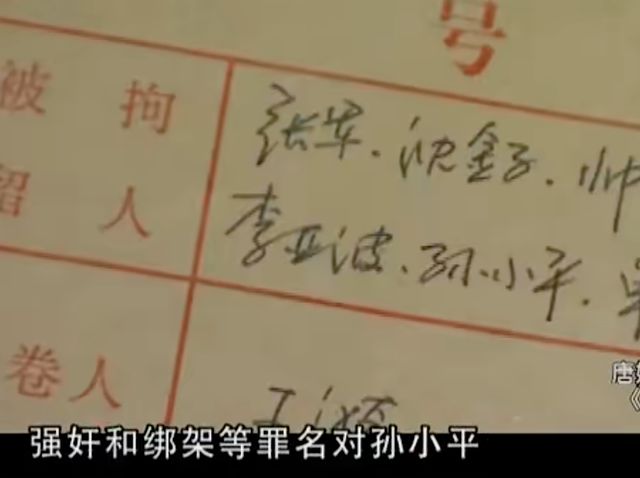 号
被拘
张军.沈金子.帅
留人
李亚波.孙小平.单
卷人
唐
《
强奸和绑架等罪名对孙小平